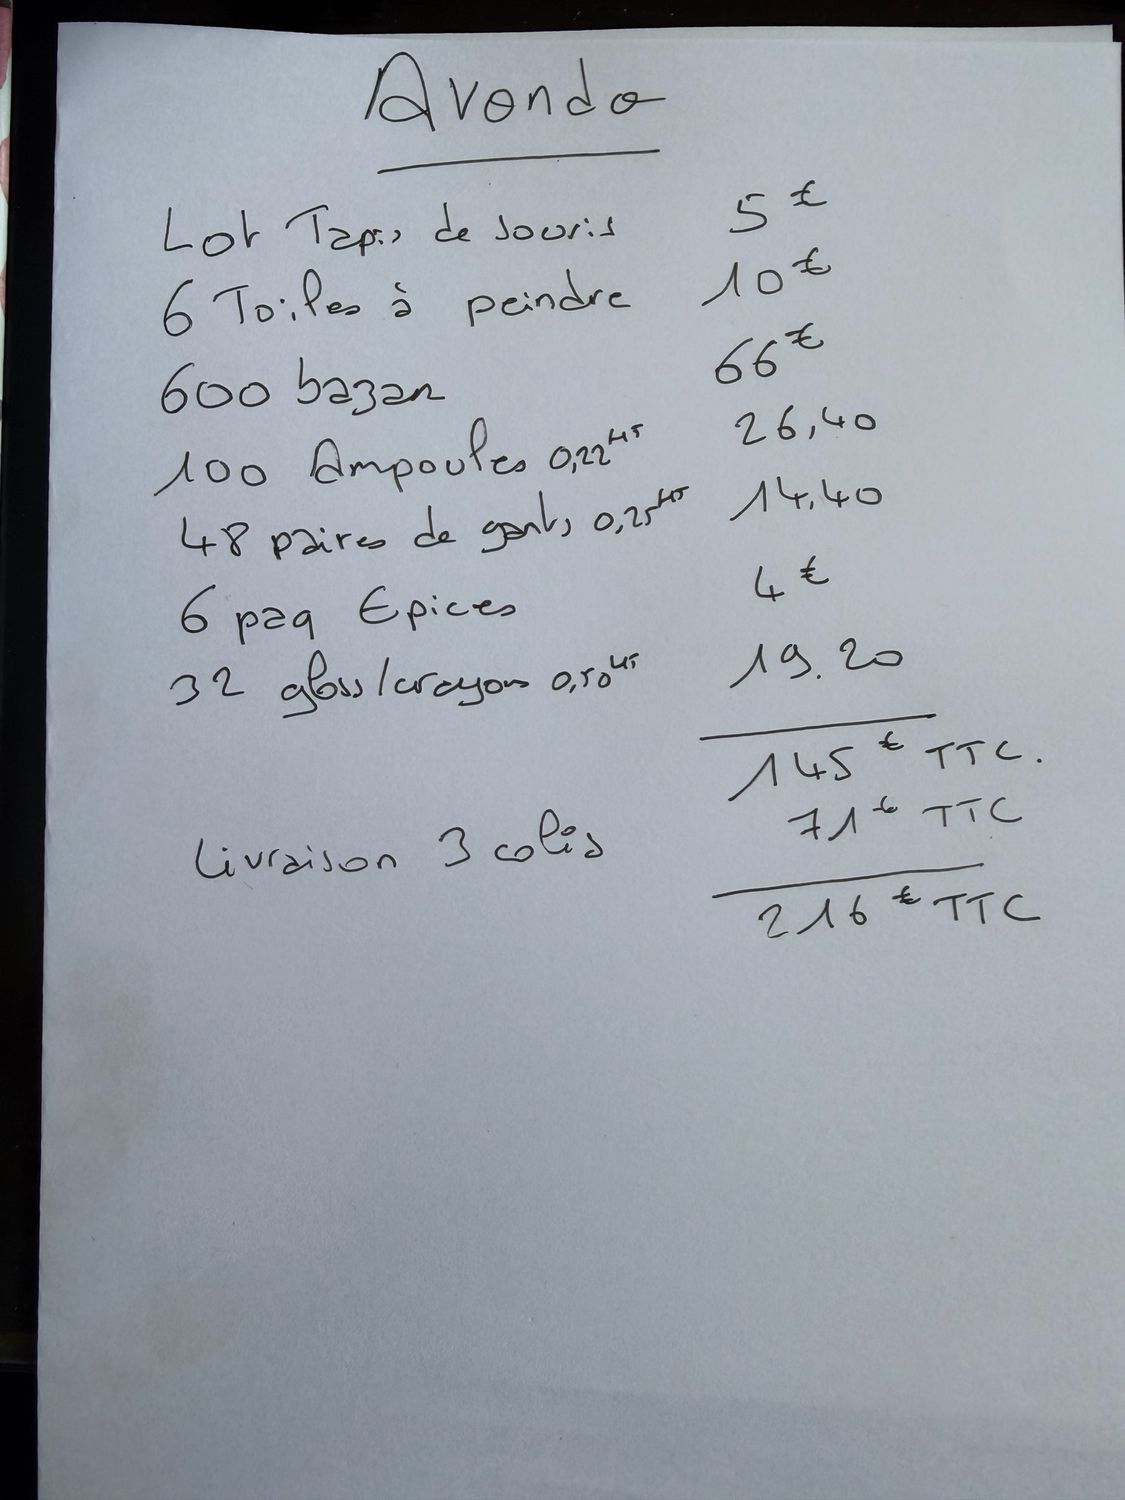 Avondo
Lot Tapis de souris 5€
6 Toiles à peindre 10€
600 bazar 66€
100 Ampoules 0,22HT 26,40
48 paires de gants 0,25HT 14,40
6 paq Epices 4€
32 gloss/crayons 0,50HT 19.20
145€ TTC.
Livraison 3 colis 71€ TTC
216€ TTC